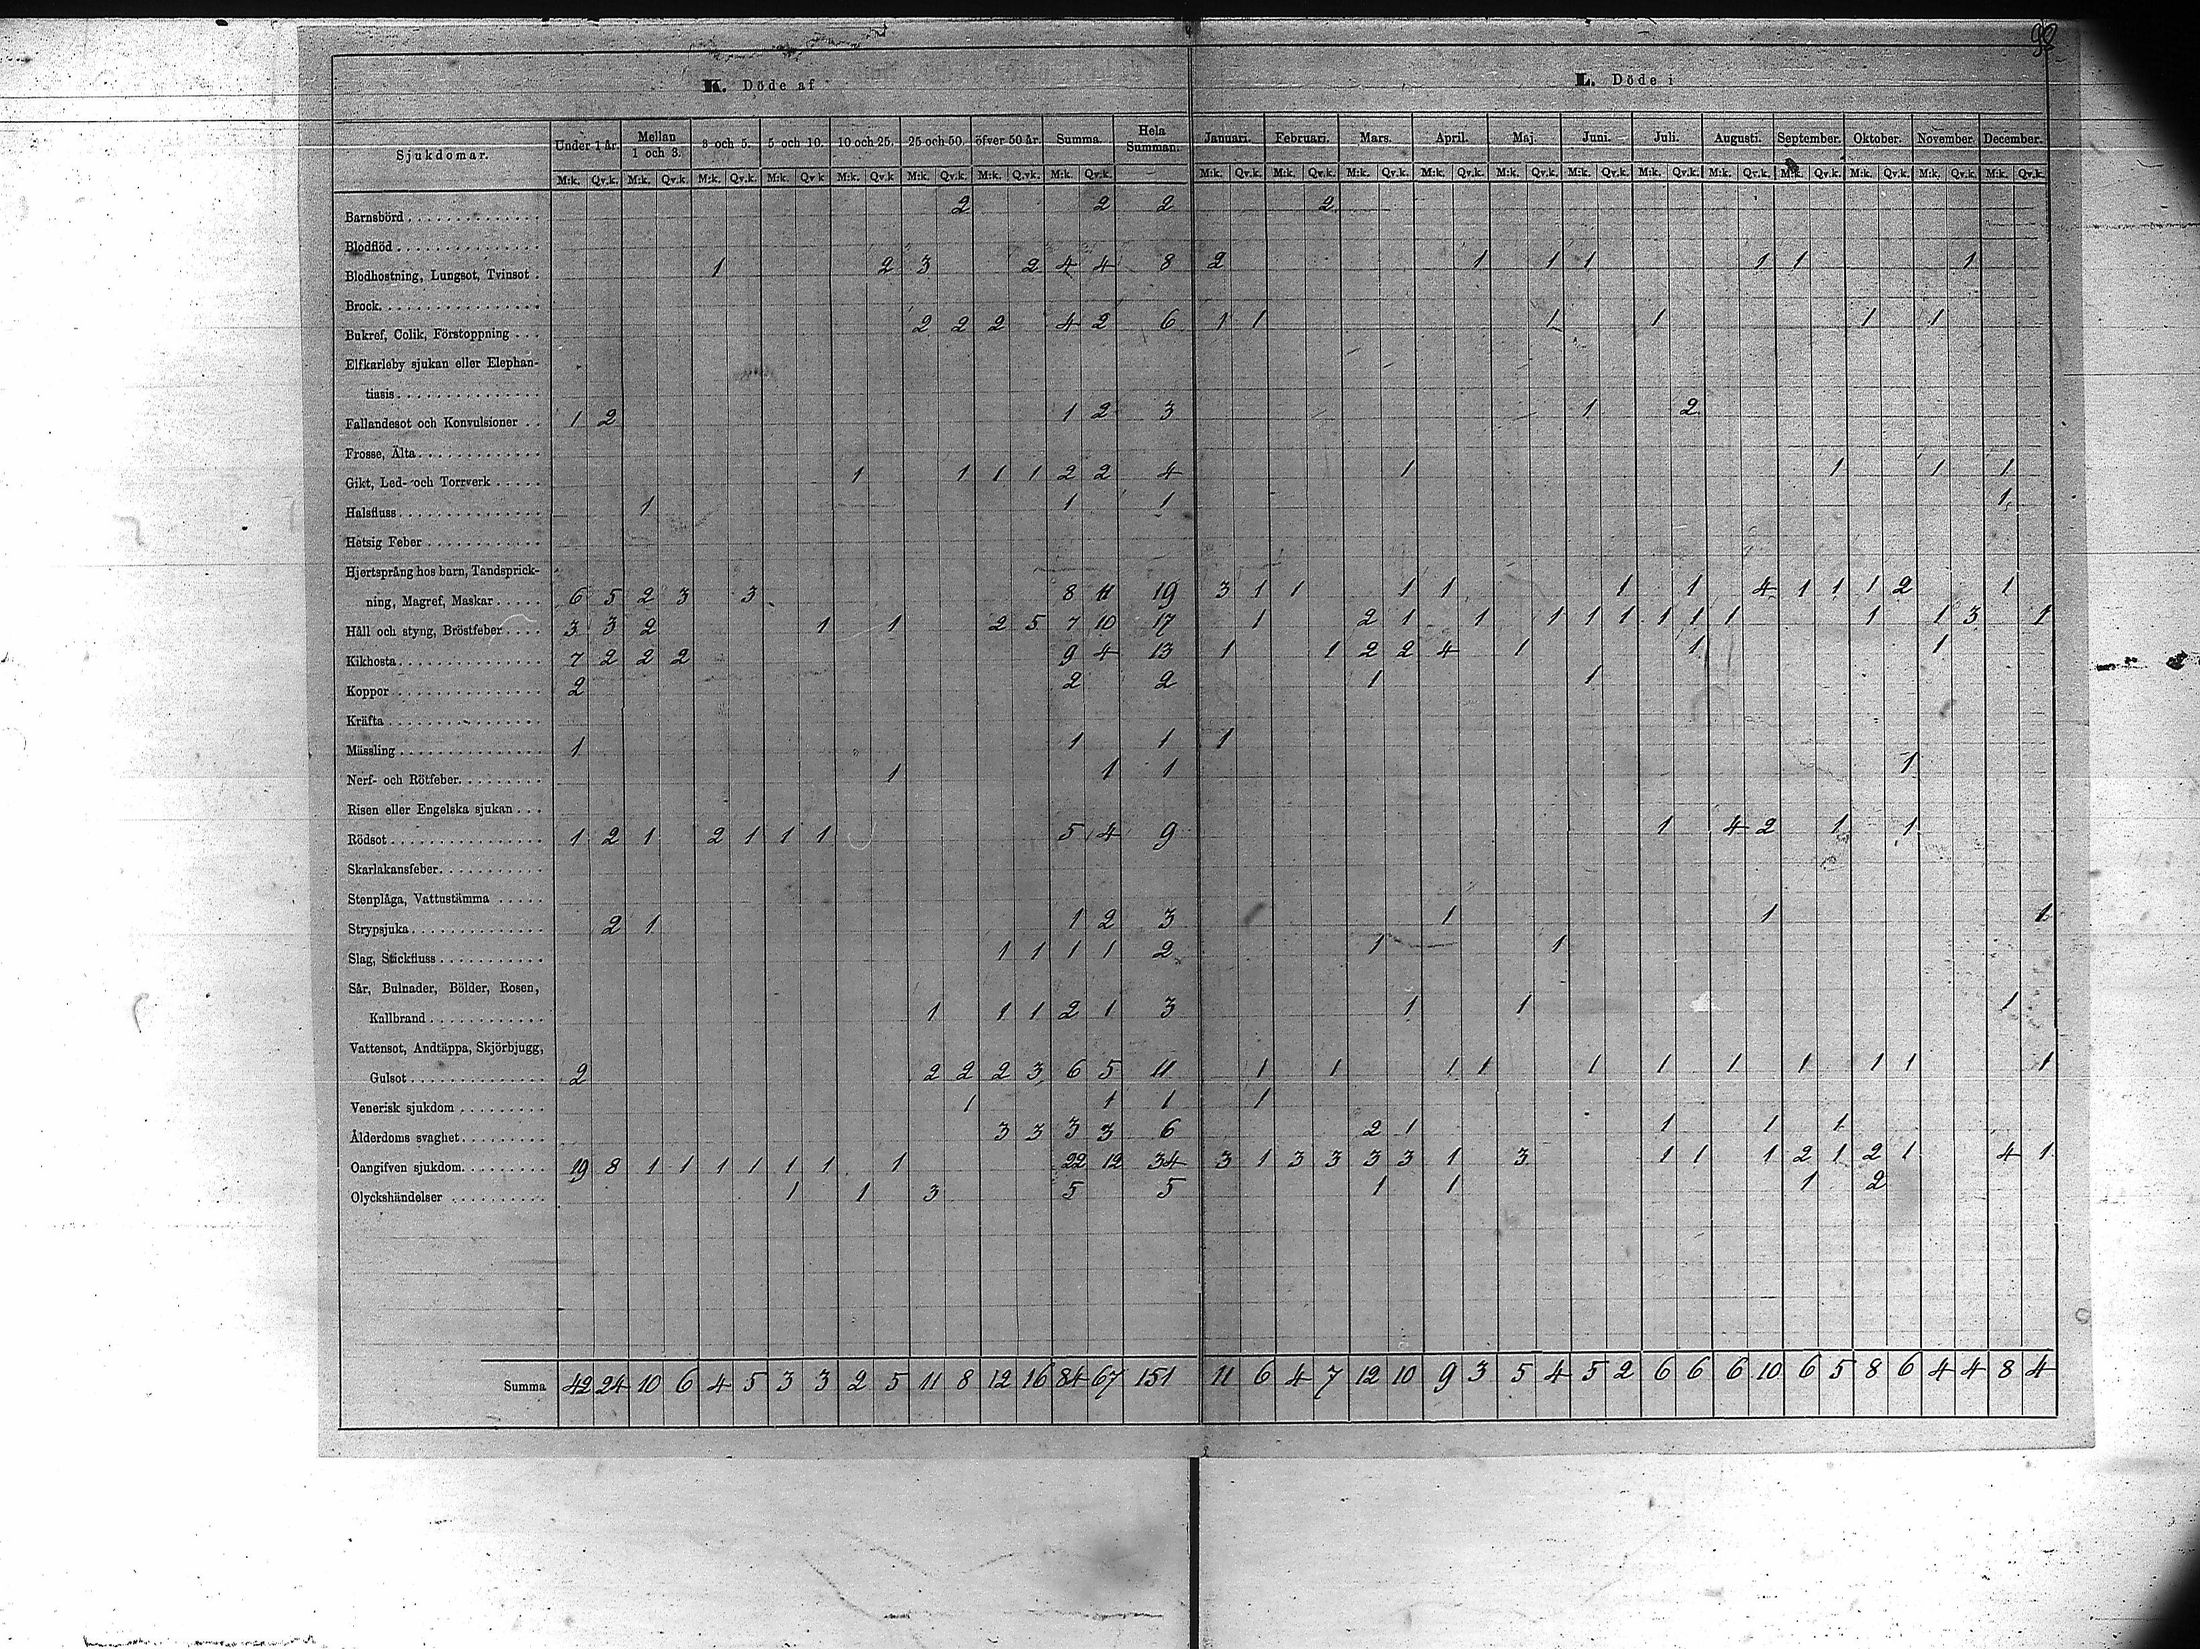 92
K. Döde af L. Döde i
Sjukdomar. Under 1 år. Mellan 1 och 3. 3 och 5. 5 och 10. 10 och 25. 25 och 50. öfver 50 år. Summa. Hela Summan. Januari. Februari. Mars. April. Maj. Juni. Juli. Augusti. September. Oktober. November. December.
M:k. Qv.k. M:k. Qv.k. M:k. Qv.k. M:k. Qv.k M:k. Qv.k M:k. Qv.k. M:k. Qv.k. M:k. Qv.k. M:k. Qv.k. M:k. Qv.k. M:k. Qv.k. M:k. Qv.k. M:k. Qv.k. M:k. Qv.k. M:k. Qv.k. M:k. Qv.k. M:k. Qv.k. M:k. Qv.k. M:k. Qv.k. M:k. Qv.k.
Barnsbörd 2 2 2 2
Blodflöd
Blodhostning, Lungsot, Tvinsot 1 2 3 2 4 4 8 2 1 1 1 1 1 1
Brock
Bukref, Colik, Förstoppning 2 2 2 4 2 6 1 1 1 1 1 1
Elfkarleby sjukan eller Elephan-
tiasis
Fallandesot och Konvulsioner 1 2 1 2 3 1 2
Frosse, Älta
Gikt, Led- och Torrverk 1 1 1 1 2 2 4 1 1 1 1
Halsfluss 1 1 1 1
Hetsig Feber
Hjertsprång hos barn, Tandsprick-
ning, Magref, Maskar 6 5 2 3 3 8 11 19 3 1 1 1 1 1 1 4 1 1 1 2 1
Håll och styng, Bröstfeber 3 3 2 1 1 2 5 7 10 17 1 2 1 1 1 1 1 1 1 1 1 1 3 1
Kikhosta 7 2 2 2 9 4 13 1 1 2 2 4 1 1 1
Koppor 2 2 2 1 1
Kräfta
Mässling 1 1 1 1
Nerf- och Rötfeber 1 1 1 1
Risen eller Engelska sjukan
Rödsot 1 2 1 2 1 1 1 5 4 9 1 4 2 1 1
Skarlakansfeber
Stenplåga, Vattustämma
Strypsjuka 2 1 1 2 3 1 1 1
Slag, Stickfluss 1 1 1 1 2 1 1
Sår, Bulnader, Bölder, Rosen,
Kallbrand 1 1 1 2 1 3 1 1 1
Vattensot, Andtäppa, Skjörbjugg,
Gulsot 2 2 2 2 3 6 5 11 1 1 1 1 1 1 1 1 1 1 1
Venerisk sjukdom 1 1 1 1
Ålderdoms svaghet 3 3 3 3 6 2 1 1 1 1
Oangifven sjukdom 19 8 1 1 1 1 1 1 1 22 12 34 3 1 3 3 3 3 1 3 1 1 1 2 1 2 1 4 1
Olyckshändelser 1 1 3 5 5 1 1 1 2
Summa 42 24 10 6 4 5 3 3 2 5 11 8 12 16 84 67 151 11 6 4 7 12 10 9 3 5 4 5 2 6 6 6 10 6 5 8 6 4 4 8 4